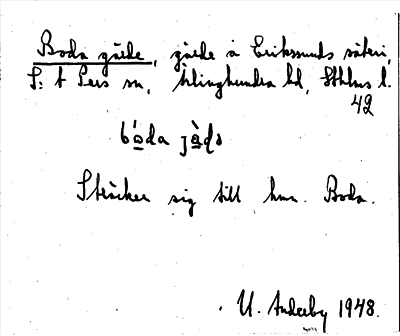 Boda gärde, gärde å Erikssunds säteri,
S:t Pers sn, Ärlinghundra hd, Sthlms l.
42
bo̲da jä̲ḍə
Sträcker sig till hm. Boda.
U. Anderby 1948.